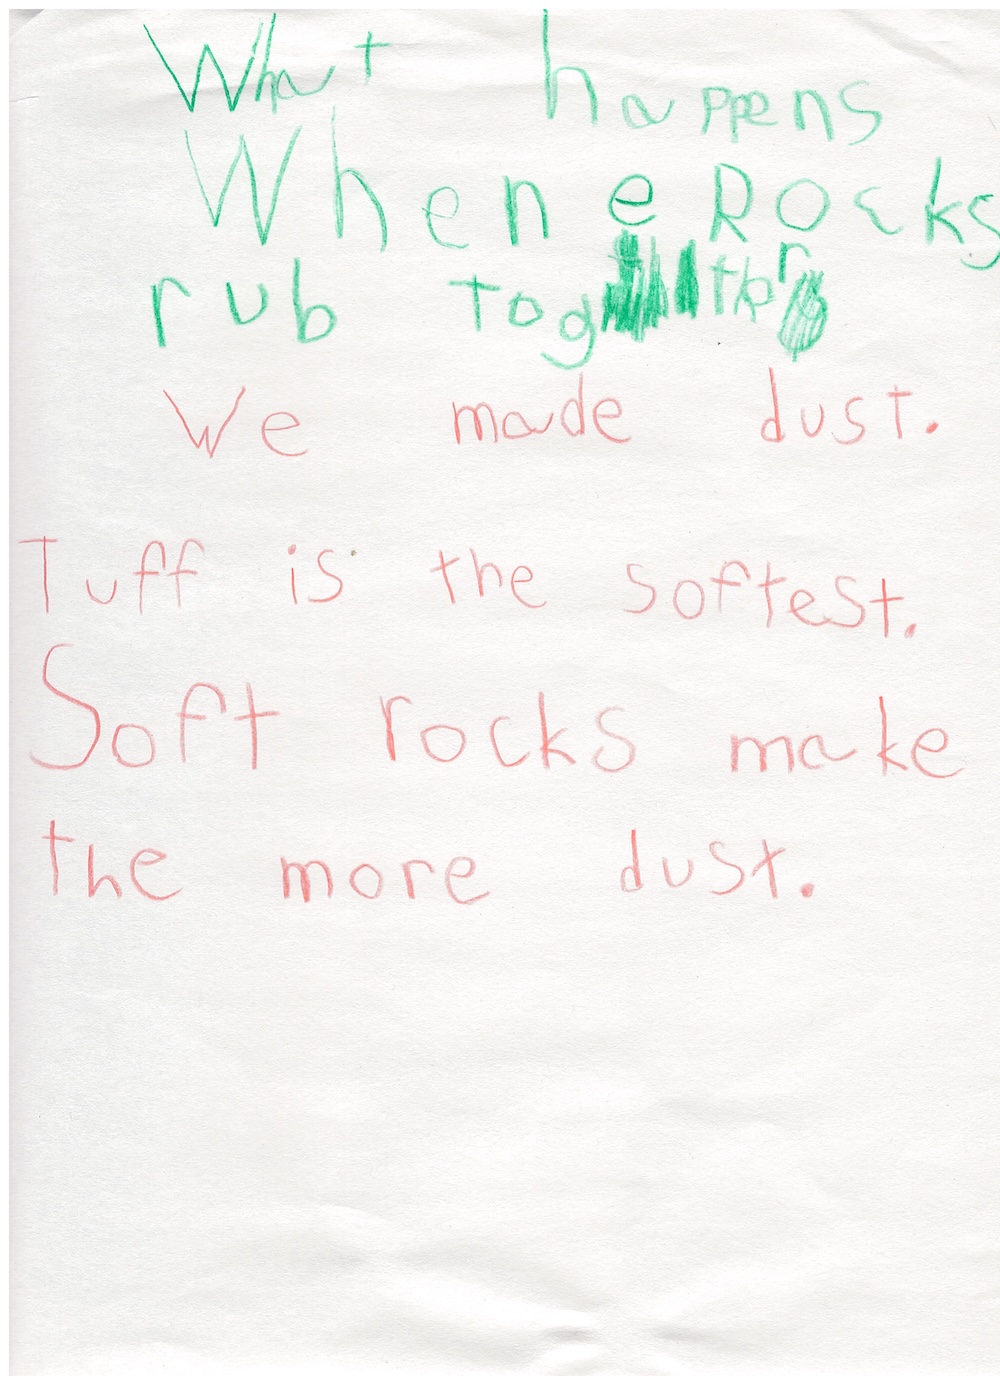 What happens
When Rocks
rub together
We made dust.
Tuff is the softest.
Soft rocks make
the more dust.